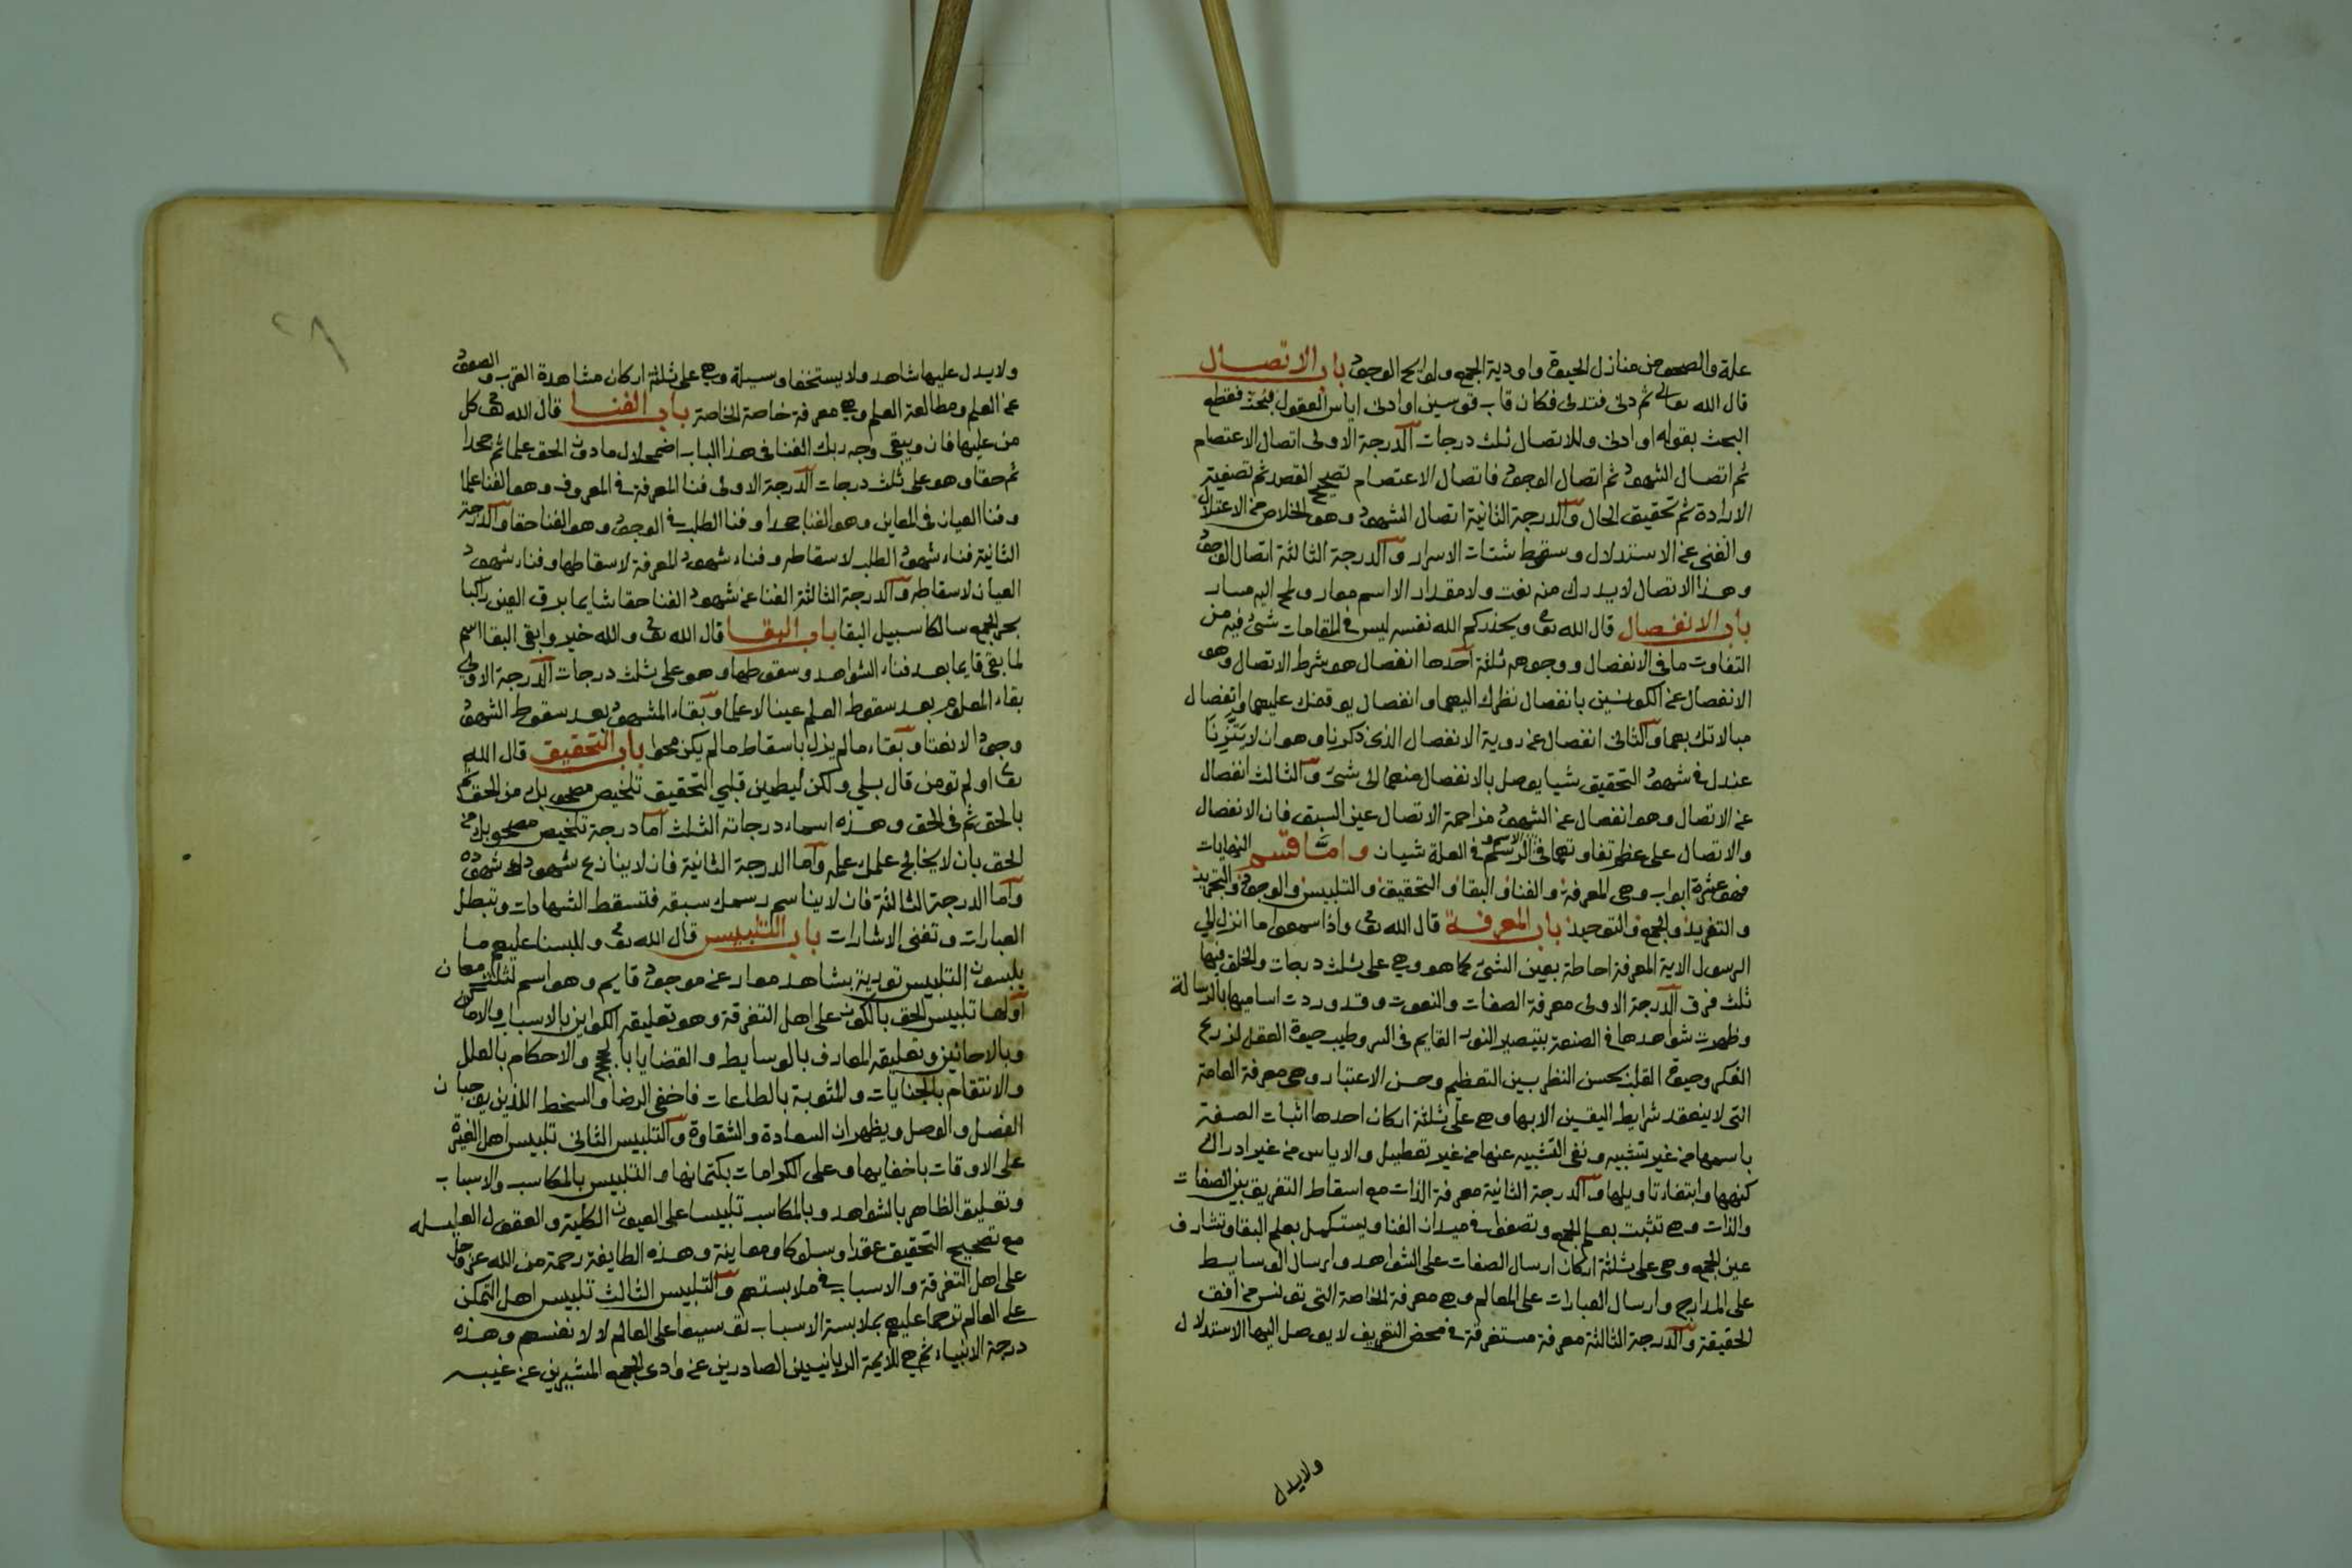 علة والصحو من منازل الحيوة واودية الجمع ولوايح الوجود باب الاتصال
قال الله تعالى ثم دنى فتدلى فكان قاب قوسين او ادنى اياس العقول فقطع
البحث بقوله او ادنى وللاتصال ثلث درجات الدرجة الاولى اتصال الاعتصام
ثم اتصال الشهود ثم اتصال الوجود فاتصال الاعتصام تصحيح القصد ثم تصفية
الارادة ثم تحقيق الحال والدرجة الثانية اتصال الشهود وهو الخلاص من الاعتلال
والغنى عن الاستدلال وسقوط شتات الاسرار والدرجة الثالثة اتصال الوجود
وهذا الاتصال لا يدرك منه نعت ولا مقدار الا اسم معار ولمح اليه مسار
باب الانفصال قال الله تعالى ويحذركم الله نفسه ليس في المقامات شئ فيه من
التفاوت ما في الانفصال ووجوهه ثلثة احدها انفصال هو شرط الاتصال وهو
الانفصال عن الكونين بانفصال نظرك اليهما وانفصال يوقفك عليهما وانفصال
مبالاتك بهما والثاني انفصال عن روية الانفصال الذى ذكرنا وهو ان لا يتزنا
عندك في شهود التحقيق شيا يوصل بالانفصال منهما الى شئ والثالث انفصال
عن الاتصال وهو انفصال عن الشهود مزاحمة الاتصال عين السبق فان الانفصال
والاتصال على عظم تفاوتهما في الاسم والرسم في العلة شيان واما قسم النهايات
فهو عشرة ابواب وهى المعرفة والفنا والبقا والتحقيق والتلبيس والوجود والتجريد
والتفريد والجمع والتوحيد باب المعرفة قال الله تعالى واذا سمعوا ما انزل الى
الرسول الاية المعرفة احاطة بعين الشئ كما هو وهى على ثلث درجات والخلق فيها
ثلث فرق الدرجة الاولى معرفة الصفات والنعوت وقد وردت اساميها بالرسالة
وظهرت شواهدها في الصنعة بتبصير النور القايم في السر وطيب حيوة العقل لزرع
الفكر وحيوة القلب بحسن النظر بين التعظيم وحسن الاعتبار وهى معرفة العامة
التى لا ينعقد شرايط اليقين الا بها وهى على ثلثة اركان احدها اثبات الصفة
باسمها من غير تشبيه ونفى التشبيه عنها من غير تعطيل والاياس من غير ادراك
كنهها وابتغاء تاويلها والدرجة الثانية معرفة الذات مع اسقاط التفريق بين الصفات
والذات وهى تثبت بعلم الجمع وتصفوا في ميدان الفنا ويستكمل بعلم البقا وتشارف
عين الجمع وهى على ثلثة اركان ارسال الصفات على الشواهد وارسال الوسايط
على المدارج وارسال العبارات على المعالم وهى معرفة الخاصة التى تونس من افق
الحقيقة والدرجة الثالثة معرفة مستغرقة في محض التعريف لا يوصل اليها الاستدلال
ولا يدل
٢٨
ولا يدل عليها شاهد ولا يستحقها وسيلة وهى على ثلثة اركان مشاهدة القرب والصعود
عن العلم ومطالعة العلم وهى معرفة خاصة الخاصة باب الفنا قال الله تعالى كل
من عليها فان ويبقى وجه ربك الفنا في هذا الباب اضمحلال ما دون الحق علما ثم جحدا
ثم حقا وهو على ثلث درجات الدرجة الاولى فنا المعرفة في المعروف وهو الفنا علما
وفنا العيان في المعاين وهو الفنا جحدا وفنا الطلب في الوجود وهو الفنا حقا والدرجة
الثانية فناء شهود الطلب لاسقاطه وفناء شهود المعرفة لاسقاطها وفناء شهود
العيان لاسقاطه والدرجة الثالثة الفنا عن شهود الفنا حقا شايما برق العين راكبا
بحر الجمع سالكا سبيل البقا باب البقا قال الله تعالى والله خير وابقى البقا اسم
لما بقى قايما بعد فناء الشواهد وسقوطها وهو على ثلث درجات الدرجة الاولى
بقاء المعلوم بعد سقوط العلم عينا لا علما وبقاء المشهود بعد سقوط الشهود
وجودا لا نعتا وبقاء ما لم يزل باسقاط ما لم يكن محوا باب التحقيق قال الله
تعالى او لم تومن قال بلى ولكن ليطمين قلبي التحقيق تلخيص مصحوبك من الحق ثم
بالحق ثم في الحق وهذه اسماء درجاته الثلث اما درجة تلخيص مصحوبك من
الحق بان لا يخالج علمك علمه واما الدرجة الثانية فان لا ينازع شهودك شهوده
واما الدرجة الثالثة فان لا يناسم رسمك سبقه فتسقط الشهادات وتبطل
العبارات وتفنى الاشارات باب التلبيس قال الله تعالى وللبسنا عليهم ما
يلبسون التلبيس تورية بشاهد معار عن موجود قايم وهو اسم لثلثة معان
اولها تلبيس الحق بالكون على اهل التفرقة وهو تعليقه الكواين بالاسباب والاماكن
وبالاحايين وتعليقه المعارف بالوسايط والقضايا بالحجج والاحكام بالعلل
والانتقام بالجنايات والمثوبة بالطاعات فاخفى الرضا والسخط اللذين يوجبان
الفصل والوصل ويظهران السعادة والشقاوة والتلبيس الثانى تلبيس اهل الغيرة
على الاوقات باخفايها وعلى الكرامات بكتمانها والتلبيس بالمكاسب والاسباب
وتعليق الظاهر بالشواهد وبالمكاسب تلبيسا على العيون الكليلة والعقول العليله
مع تصحيح التحقيق عقدا وسلوكا ومعاينة وهذه الطايفة رحمة من الله عز وجل
على اهل التفرقة والاسباب في ملابستهم والتلبيس الثالث تلبيس اهل التمكن
على العالم ترحما عليهم بملابسة الاسباب توسيعا على العالم لا لانفسهم وهذه
درجة الانبياء ثم هى للايمة الربانيين الصادرين عن وادى الجمع المشيرين عن غيبه